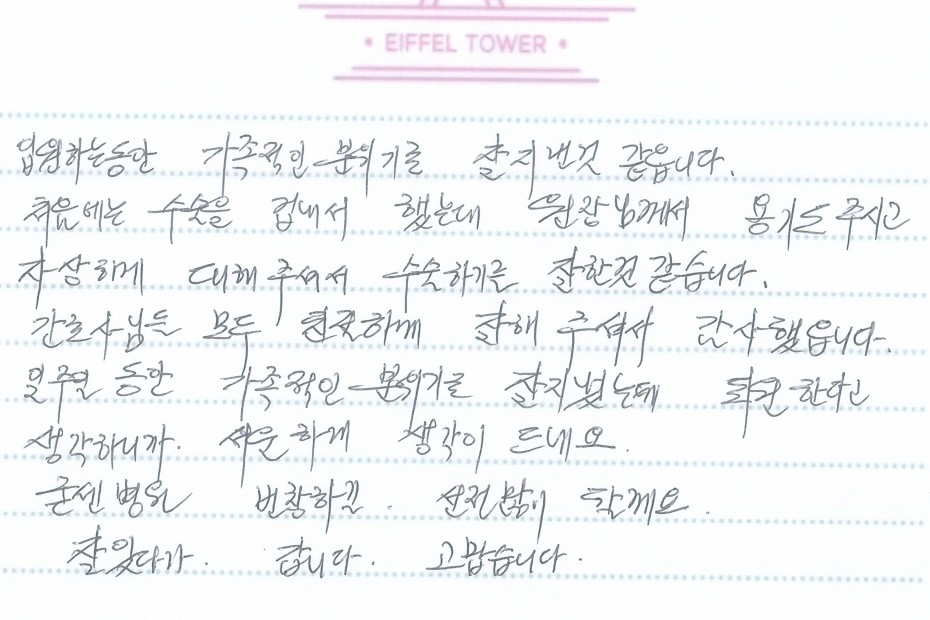 • EIFFEL TOWER •
입원하는동안 가족적인 분위기로 잘지낸것 같읍니다.
처음에는 수술을 겁내서 했는대 원장님께서 용기도 주시고
자상하게 대해 주셔서 수술하기를 잘한것 같습니다.
간호사님들 모두 친절하게 잘해 주셔서 감사했읍니다.
일주일 동안 가족적인 분위기로 잘지냈는데 퇴원 한다고
생각하니까. 서운하게 생각이 드네요.
굳센병원 번창하길. 선전많이 할께요.
잘있다가. 갑니다. 고맙습니다.